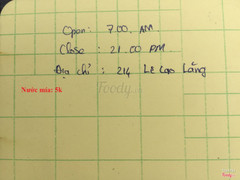 Open: 7.00 AM.
Close: 21.00 PM.
Địa chỉ: 214 Lê Cao Lãng
Nước mía: 5k
Foody